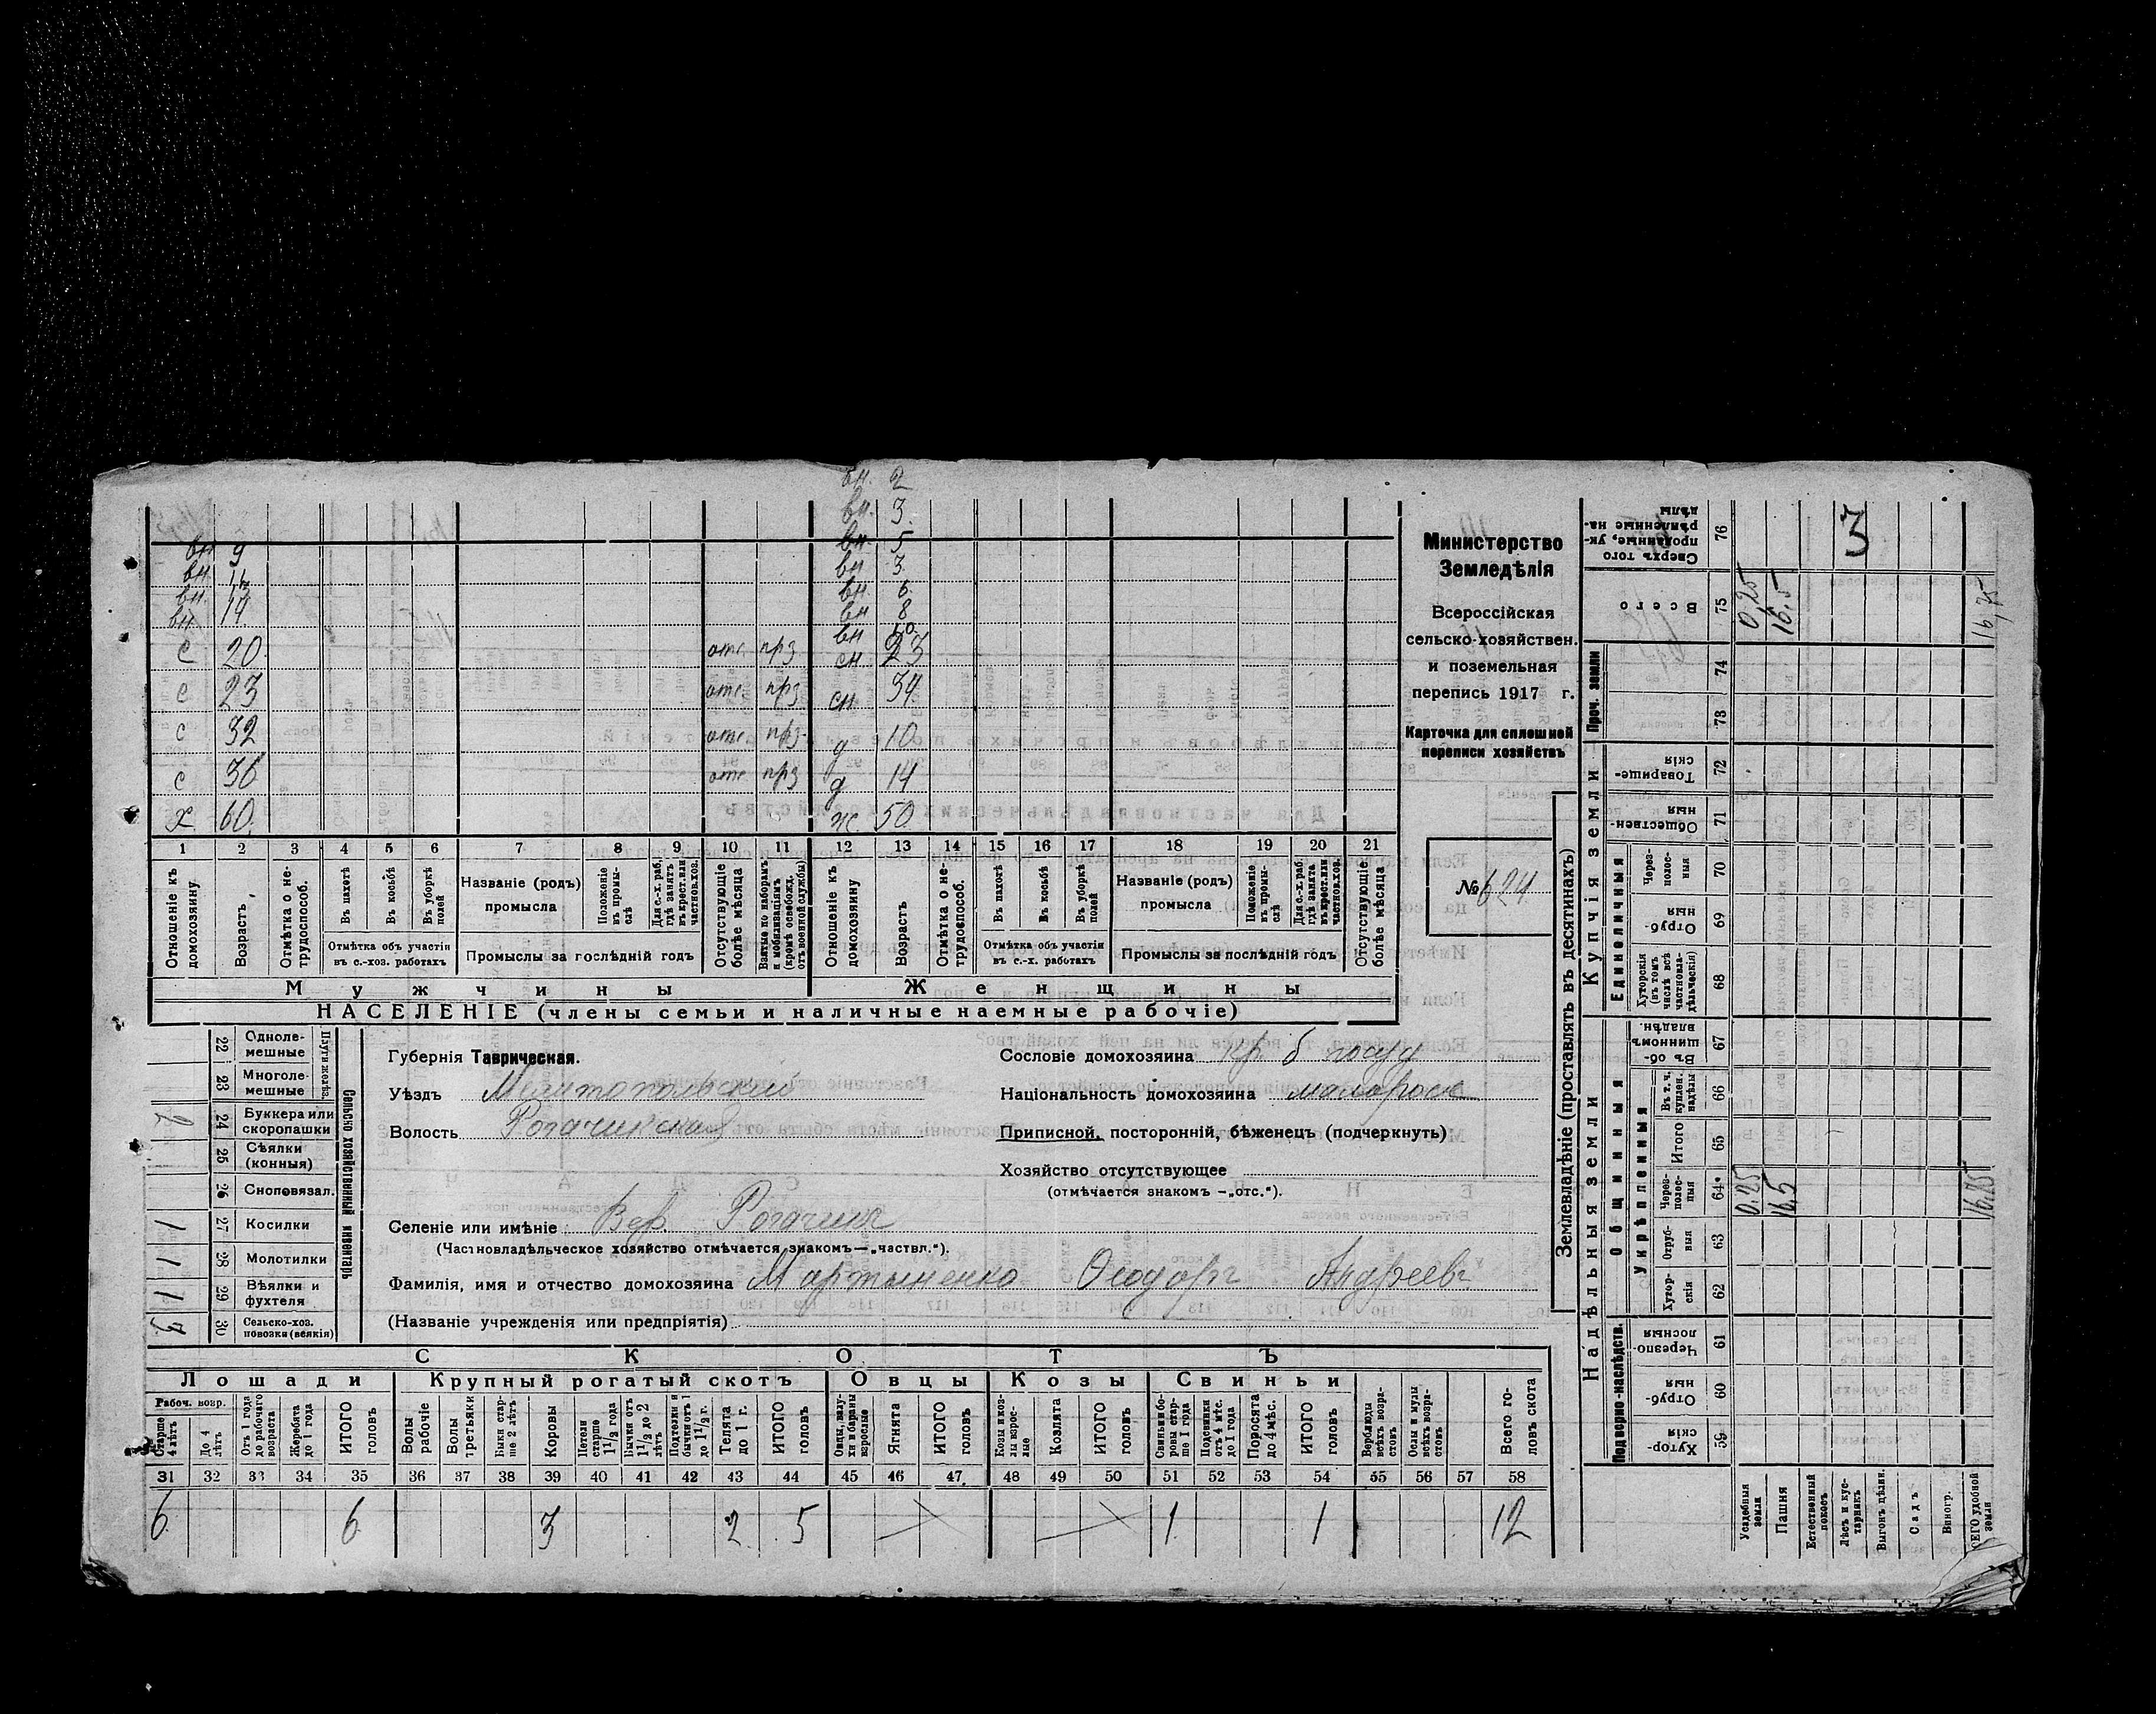 вн. 2
вн. 3
вн. 5
вн 9 вн 3
вн. 11 вн. 6
вн. 13 вн 8
вн. 14 вн 10
с 20 отс. прз сн. 23
с 23 отс. прз сн. 34
с 32 отс. прз. д 10
с 36 отс прз д 14
х 60. ж. 50
1 2 3 4 5 6 7 8 9 10 11 12 13 14 15 16 17 18 19 20 21
Отношеніе къ домохозяину.
Возрастъ
Отмѣтка о не-трудоспособ.
Въ пахотѣ
Въ косьбѣ
Въ уборкѣ полей
Отмѣтка объ участіи въ с.-хоз. работахъ
Названіе (родъ) промысла
Положеніе въ промы-слѣ
Для с.-х. раб. гдѣ занятъ въ крест. или частнов. хоз.
Промыслы за послѣдній годъ
Отсутствующіе болѣе мѣсяца
Взятые по наборамъ и мобилизаціямъ (кромѣ освобожд. отъ военной службы)
Отношеніе къ домохозяину
Возрастъ
Отмѣтка о не-трудоспособ.
Въ пахотѣ
Въ косьбѣ
Въ уборкѣ полей
Отмѣтка объ участіи въ с.-х. работахъ
Названіе (родъ) промысла
Положеніе въ промы-слѣ
Для с.-х. раб. гдѣ занята въ крест. или частнов. хоз.
Промыслы за послѣдній годъ
Отсутствующіе болѣе мѣсяца
Мужчины Женщины
НАСЕЛЕНІЕ (члены семьи и наличные наемные рабочіе)
Министерство
Земледѣлія
Всероссійская
сельско-хозяйствен.
и поземельная
перепись 1917 г.
Карточка для сплошной
переписи хозяйствъ
№ 624
Сельско хозяйственный инвентарь
Плуги желѣз.
22 Одноле-мешные
23 Многоле-мешные
2 24 Буккера или скоропашки
25 Сѣялки (конныя)
26 Сноповязал.
1 27 Косилки
1 28 Молотилки
1 29 Вѣялки и фухтеля
3 30 Сельско-хоз. повозки (всякія)
Губернія Таврическая.
Уѣздъ Мелитопольский
Волость Рогачикская
Сословіе домохозяина кр. б
Національность домохозяина малоросс
Приписной, посторонній, бѣженецъ (подчеркнуть)
Хозяйство отсутствующее
(отмѣчается знакомъ —„отс.").
Селеніе или имѣніе Вер. Рогачик
(Частновладѣльческое хозяйство отмѣчается знакомъ—„частвл.").
Фамилія, имя и отчество домохозяина Мартыненко Ѳеодоръ Андреевъ
(Названіе учрежденія или предпріятія)
СКОТЪ
Лошади Крупный рогатый скотъ Овцы Козы Свиньи
Рабоч. возр.
Старше 4 лѣтъ
До 4 лѣтъ
Отъ 1 года до рабочаго возраста
Жеребята до 1 года
ИТОГО головъ
Волы рабочіе
Волы третьяки
Быки стар-ше 2 лѣтъ
Коровы
Нетели старше 1 1/2 года
Бычки отъ 1 1/2 до 2 лѣтъ
Подтелки и бычки отъ 1 до 1 1/2 г.
Телята до 1 г.
ИТОГО головъ
Овцы, валу-хи и бараны взрослые
Ягнята
ИТОГО головъ
Козы и коз-лы взрос-лые
Козлята
ИТОГО головъ
Свиньи бо-ровы стар-ше 1 года
Подсвинки отъ 4 мѣс. до 1 года
Поросята до 4 мѣс.
ИТОГО головъ
Верблюды всѣхъ возра-стовъ
Ослы и мулы всѣхъ возра-стовъ
Всего го-ловъ скота
31 32 33 34 35 36 37 38 39 40 41 42 43 44 45 46 47 48 49 50 51 52 53 54 55 56 57 58
6 6 3 2 5 1 1 12
Землевладѣніе (проставлять въ десятинахъ)
Надѣльныя земли
Купчія земли
Проч. земли
Подворно-наслѣдств.
Общинныя
Укрѣпленныя
Единоличныя
Сверхъ того проданные, ук-рѣпленные на-дѣлы 76 3
Всего 75 0,25 16,5 16,75
74
73
Товарище-скія 72
Обществен-ныя 71
Через-полос-ныя 70
Отруб-ныя 69
Хуторскія (въ томъ числѣ всѣ частновла-дѣльческія) 68
Въ об-щинномъ владѣн. 67
Въ т. ч. куплен. надѣлы 66
Итого 65
Через-полос-ныя 64 0,25 16,5 16,25
Отруб-ныя 63
Хутор-скія 62
Черезпо-лосныя 61
Отруб-ныя 60
Хутор-скія 59
Усадебныя земли
Пашня
Естественный покосъ
Лѣсъ и кус-тарникъ
Выгонъ цѣлин.
Садъ
Виногр.
ВСЕГО удобной земли